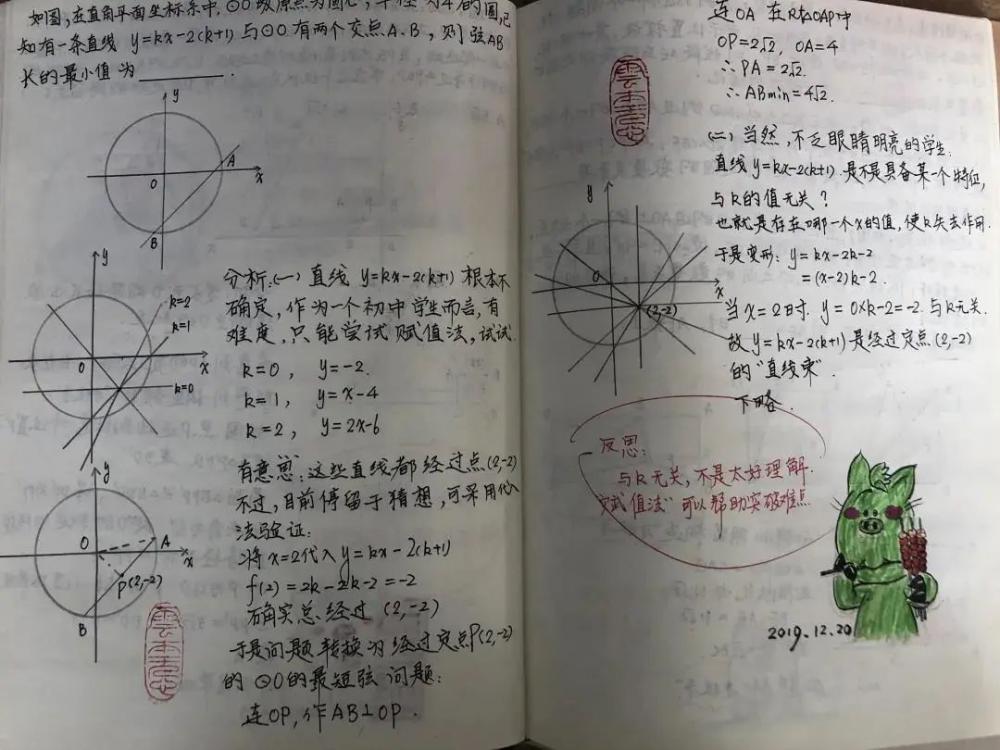 如图,在直角平面坐标系中,⊙O以原点为圆心,半径为4的圆,已
知有一条直线 y=kx-2(k+1) 与⊙O有两个交点A、B,则弦AB
长的最小值为________.
y
A
O
x
B
y
k=2
k=1
O
x
k=0
分析:(一) 直线 y=kx-2(k+1) 根本不
确定,作为一个初中学生而言,有
难度,只能尝试赋值法,试试.
k=0, y=-2.
k=1, y=x-4
k=2, y=2x-6
有意思:这些直线都经过点(2,-2)
不过,目前停留于猜想,可采用代入
法验证:
将x=2代入y=kx-2(k+1)
f(2)=2k-2k-2=-2
确实总经过 (2,-2)
于是问题转换为经过定点P(2,-2)
的⊙O的最短弦问题:
连OP,作AB⊥OP.
y
O
A
x
P(2,-2)
B
连OA 在Rt△OAP中
OP=2√2, OA=4
∴PA=2√2.
∴ABmin=4√2.
(二) 当然,不乏眼睛明亮的学生.
直线y=kx-2(k+1)是不是具备某一个特征,
与k的值无关?
也就是存在哪一个x的值,使k失去作用.
于是变形: y=kx-2k-2
=(x-2)k-2
当x=2时, y=0×k-2=-2 与k无关.
故y=kx-2(k+1)是经过定点(2,-2)
的"直线束".
下略.
y
O
x
(2,-2)
反思:
与k无关,不是太好理解.
"赋值法"可以帮助突破难点
2019.12.20